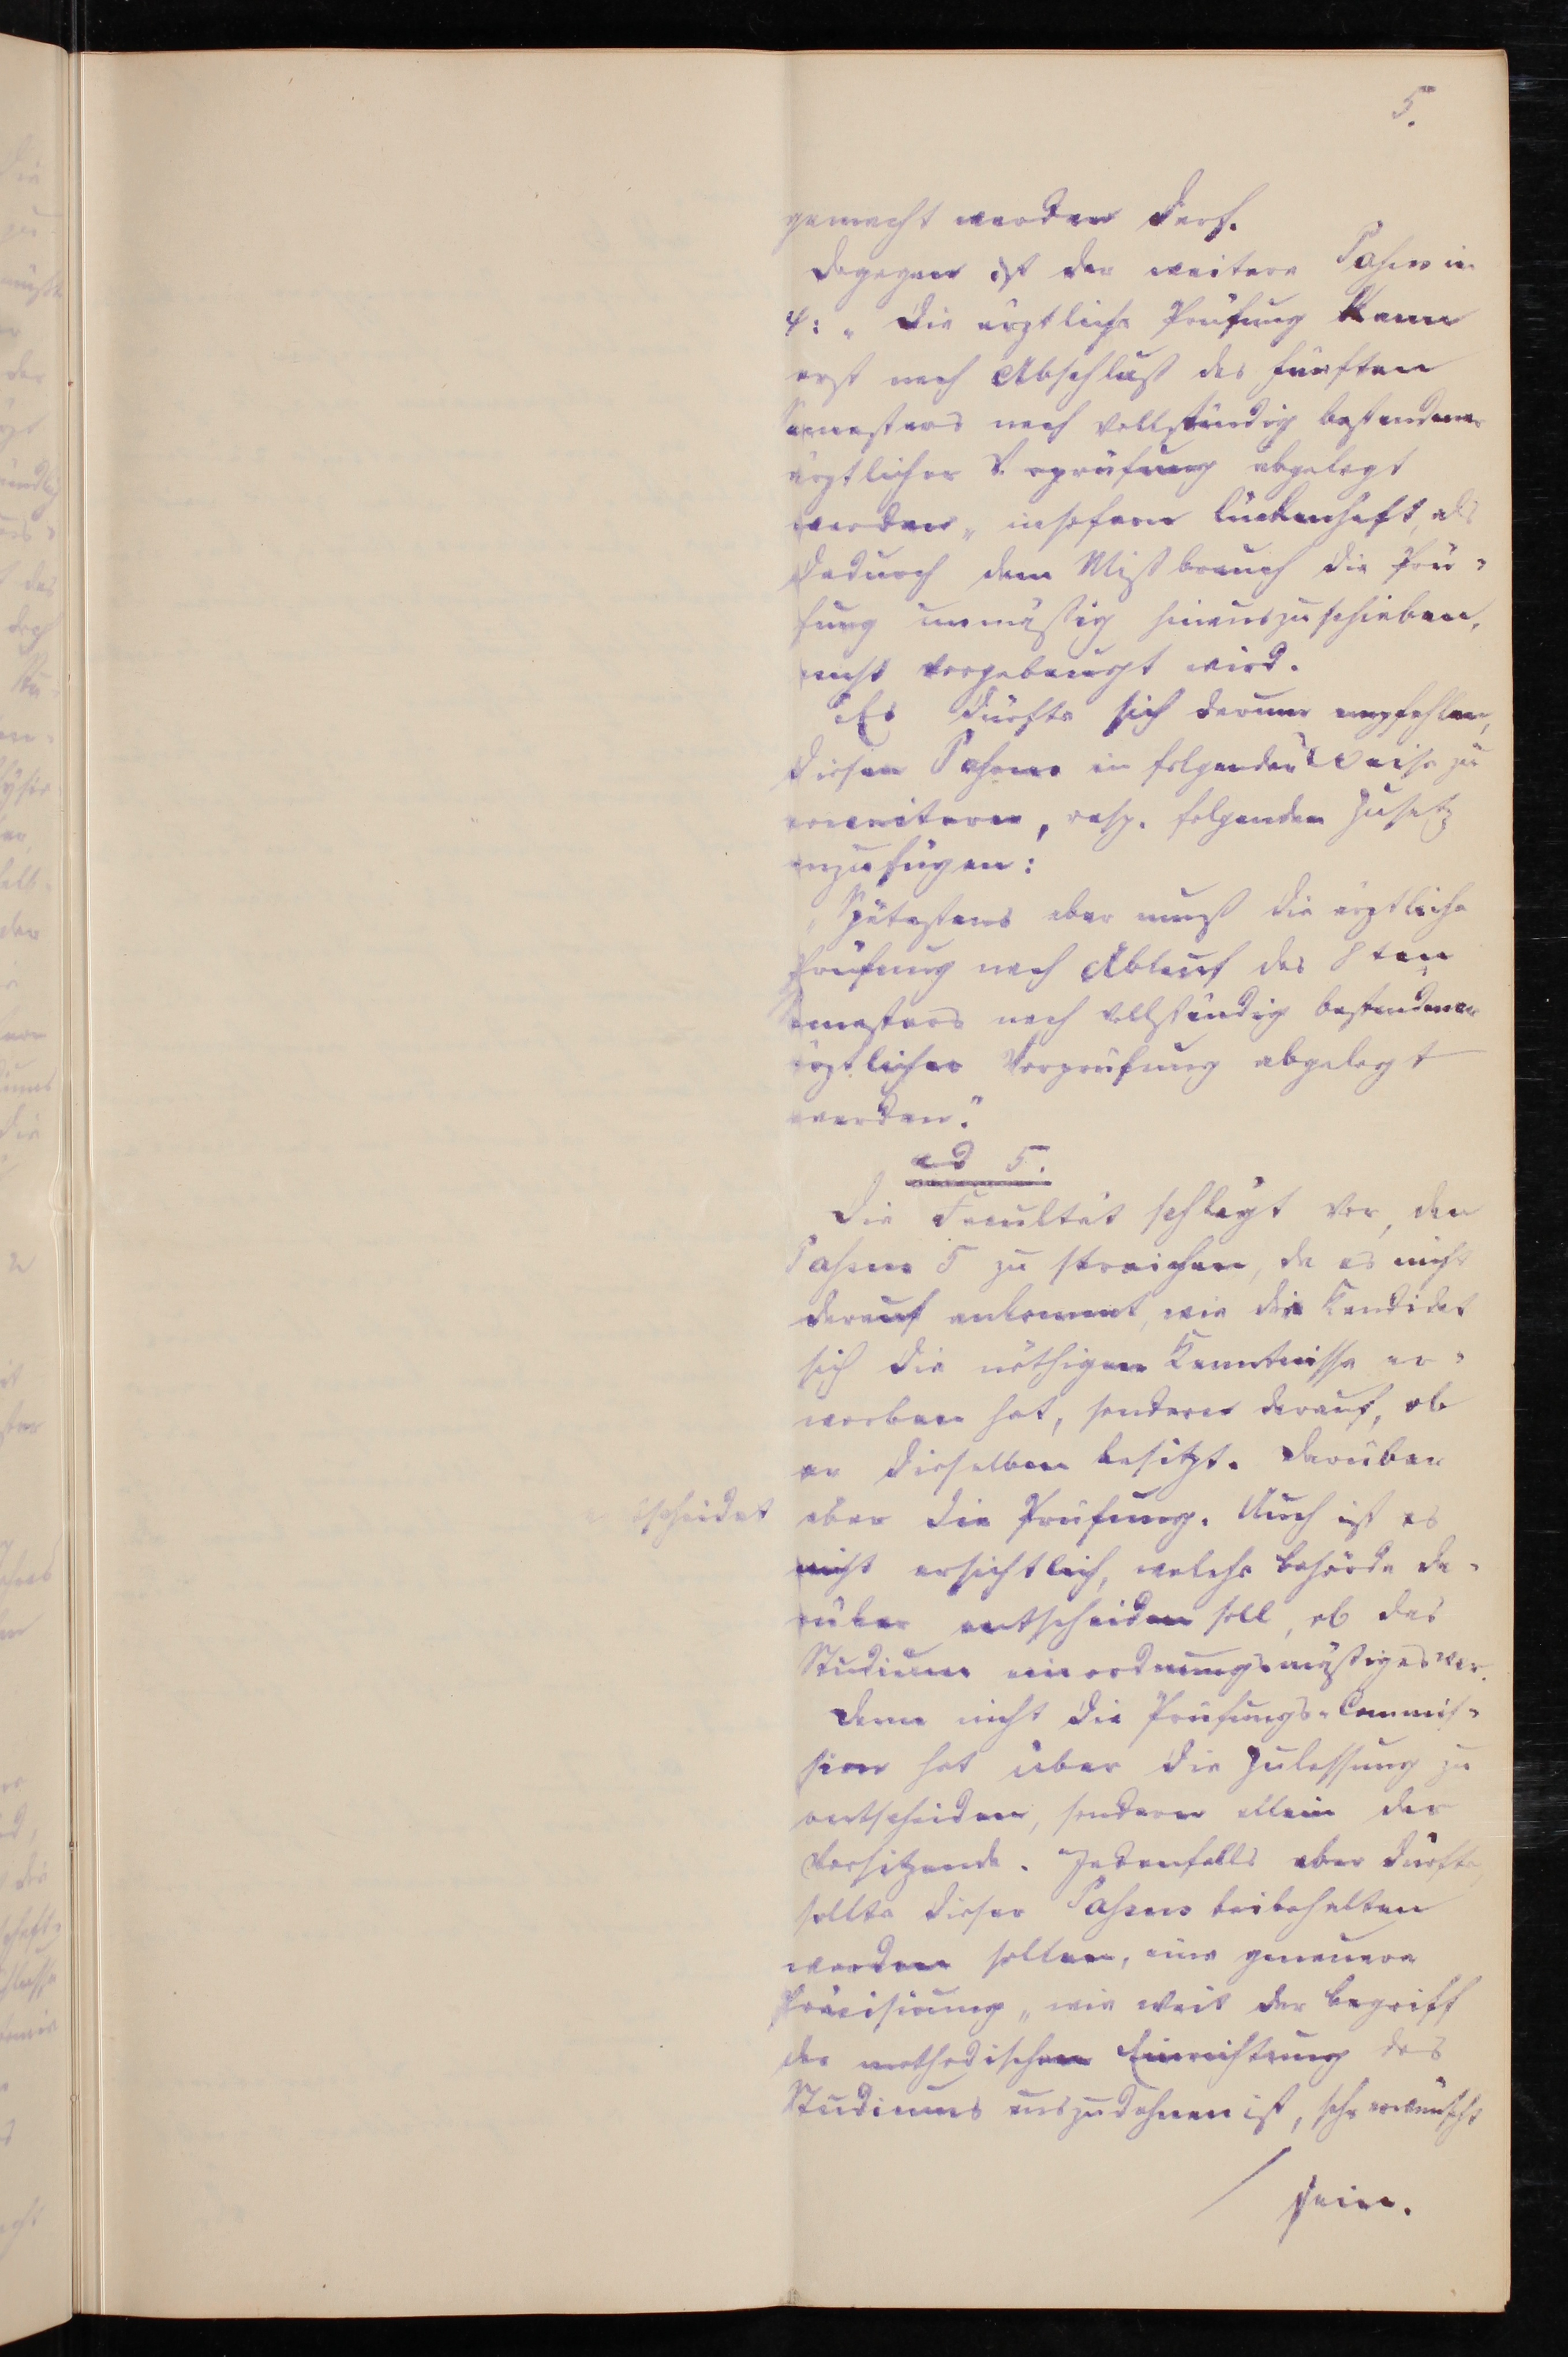 5.
gemacht werden darf.
Dagegen ist der weitere Passus in
4: „Die ärztliche Prüfung kann
erst nach Abschluß des fünften
Semesters nach vollständig bestandener
ärztlicher Vorprüfung abgelegt
werden„ insofern lückenhaft, als
dadurch dem Mißbrauch die Prü-
fung unmäßig hinauszuschieben,
nicht vorgebeugt wird.
Es dürfte sich darum empfehlen,
diesen Passus in folgender Weise zu
erweitern, resp. folgenden Zusatz
anzufügen:
„Spätestens aber muß die ärztliche
Prüfung nach Ablauf des 8ten
Semesters nach vollständig bestandener
ärztlicher Vorprüfung abgelegt
werden."
ad 5.
Die Facultät schlägt vor, den
Passus 5 zu streichen, da es nicht
darauf ankommt, wie der Kandidat
sich die nöthigen Kenntnisse er-
worben hat, sondern darauf, ob
er dieselben besitzt. Darüber
entscheidet aber die Prüfung. Auch ist es
nicht ersichtlich, welche Behörde da-
rüber entscheiden soll, ob das
Studium ein ordnungsmäßiges war.
Denn nicht die Prüfungs-Commis-
sion hat über die Zulassung zu
entscheiden, sondern allein der
Vorsitzende. Jedenfalls aber dürfte,
sollte dieser Passus beibehalten
werden sollen, eine genauere
Präcisirung, wie weit der Begriff
der methodischen Einrichtung des
Studiums auszudehnen ist, sehr erwünscht
sein.